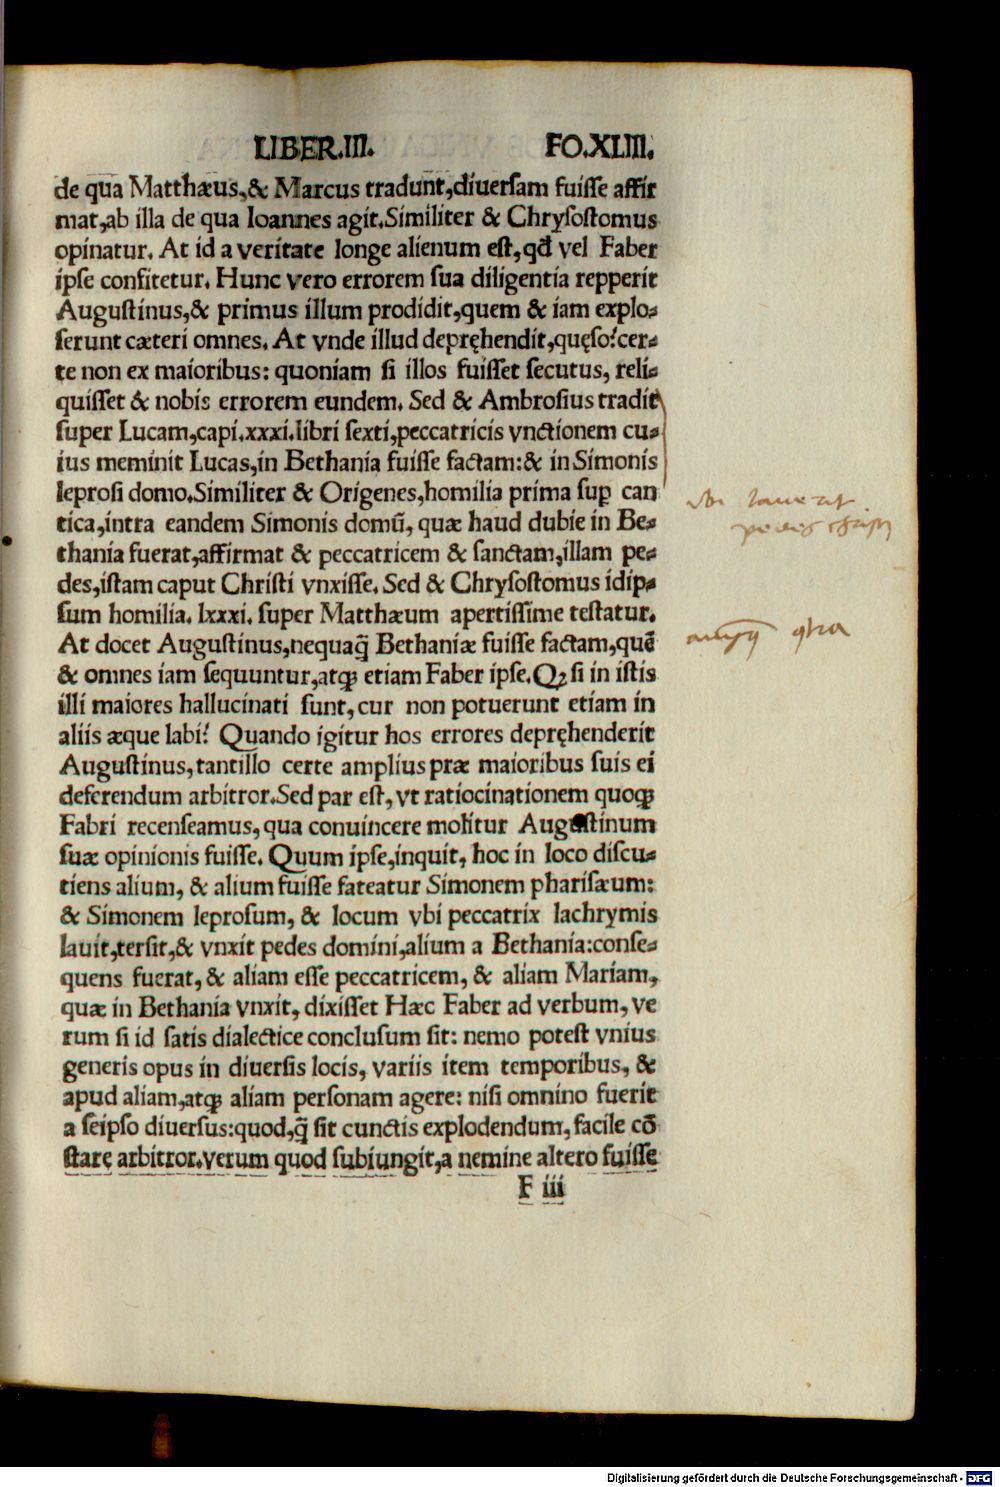 LIBER.III. FO.XLIII.
de qua Matthæus,& Marcus tradunt,diuersam fuisse affir
mat,ab illa de qua Ioannes agit.Similiter & Chrysostomus
opinatur. At id a veritate longe alienum est,qđ vel Faber
ipse confitetur. Hunc vero errorem sua diligentia repperit
Augustinus,& primus illum prodidit,quem & iam explo⸗
serunt cæteri omnes. At vnde illud depręhendit,quęso?cer⸗
te non ex maioribus: quoniam si illos fuisset secutus, reli⸗
quisset & nobis errorem eundem. Sed & Ambrosius tradit
super Lucam,capi.xxxi.libri sexti,peccatricis vnctionem cu⸗
ius meminit Lucas,in Bethania fuisse factam:& in Simonis
leprosi domo.Similiter & Origenes,homilia prima suꝑ can
tica,intra eandem Simonis domū, quæ haud dubie in Be⸗
thania fuerat,affirmat & peccatricem & sanctam,illam pe⸗
des,istam caput Christi vnxisse. Sed & Chrysostomus idip⸗
sum homilia. lxxxi. super Matthæum apertissime testatur.
At docet Augustinus,nequaq̃ Bethaniæ fuisse factam,quē
& omnes iam sequuntur,atqꝫ etiam Faber ipse.Qꝫ si in istis
illi maiores hallucinati sunt, cur non potuerunt etiam in
aliis æque labi? Quando igitur hos errores depręhenderit
Augustinus,tantillo certe amplius præ maioribus suis ei
deferendum arbitror.Sed par est, vt ratiocinationem quoqꝫ
Fabri recenseamus, qua conuincere molitur Augustinum
suæ opinionis fuisse. Quum ipse,inquit, hoc in loco discu⸗
tiens alium, & alium fuisse fateatur Simonem pharisæum:
& Simonem leprosum, & locum vbi peccatrix lachrymis
lauit,tersit,& vnxit pedes domini,alium a Bethania:conse⸗
quens fuerat, & aliam esse peccatricem, & aliam Mariam,
quæ in Bethania vnxit, dixisset Hæc Faber ad verbum, ve
rum si id satis dialectice conclusum sit: nemo potest vnius
generis opus in diuersis locis, variis item temporibus, &
apud aliam,atqꝫ aliam personam agere: nisi omnino fuerit
a seipso diuersus:quod,q̃ sit cunctis explodendum, facile cō
stare arbitror.verum quod subiungit,a nemine altero fuisse
F iii
pedes
Digitalisierung gefördert durch die Deutsche Forschungsgemeinschaft - DFG